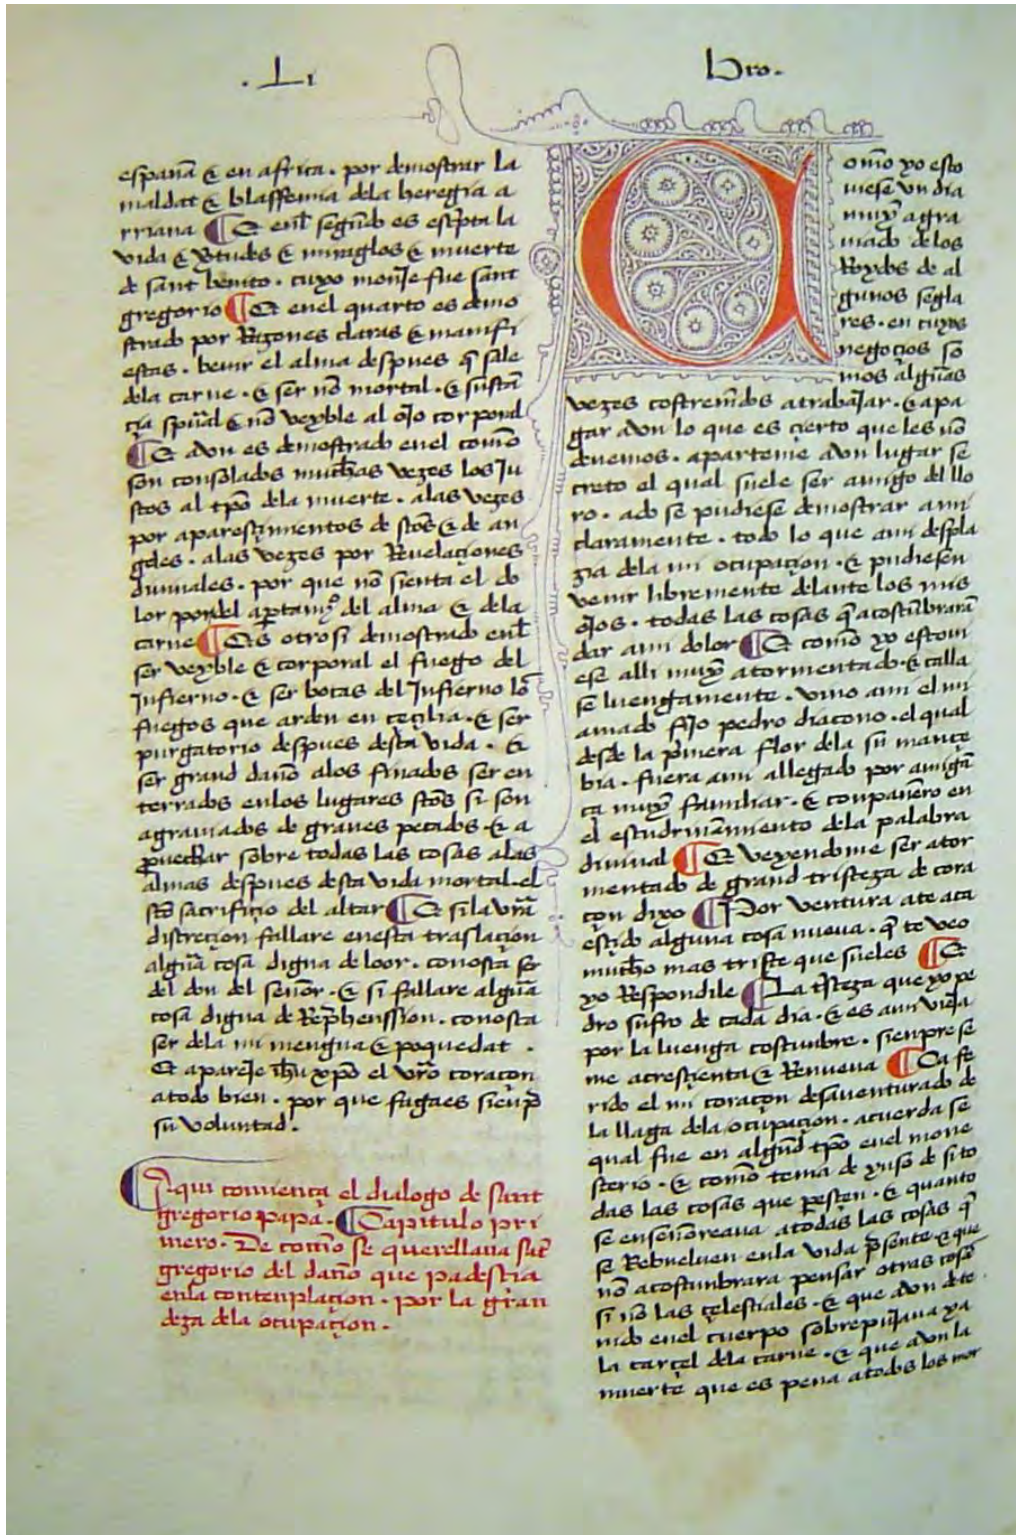 . Li
bro .
españa & en africa . por demostrar la
maldat & blaffemia dela heregia a
rriana ¶ E enl segũdo es escpta la
vida & v̓tudes & miraglos & muerte
de sant benito . cuyo monJe fue sant
gregorio ¶ E enel quarto es demo
strado por Razones claras & manifi
estas . beuir el alma despues q̃ sale
dela carne . & ser nõ mortal . & sustã
çia spũal & nõ veyble al oJo corporal
¶ E avn es demostrado enel comõ
son consolados muchas vezes los Ju
stos al tpõ dela muerte . alas vezes
por aparesçimientos de stõs & de an
geles . alas vezes por Reuelaçiones
diuinales . por que nõ sienta el do
lor del apartamyº del alma & dela
carne ¶ Es otrosi demostrado enl
ser veyble & corporal el fuego del
Jnfierno . & ser bocas del Jnfierno lõ
fuegos que arden en çeçilia . & ser
purgatorio despues desta vida . &
ser grand daño alos finados ser en
terrados enlos lugares stõs si son
agrauiados de graues pecados . & a
prouechar sobre todas las cosas alas
almas despues desta vida mortal . el
stõ sacrifiçio del altar ¶ E sila vr̃a
discreçion fallare enesta traslaçion
algũa cosa digna de loor . conosca ser
del don del señor . & si fallare algũa
cosa digna de Rep̃henssion . conosca
ser dela mi mengua & poquedat .
Et apareJe ihũ xpõ el vr̃o coraçon
atodo bien . por que fagaes sienp̃
su voluntad .
¶ Aqui comiença el dialogo de sant
gregorio papa . ¶ Capitulo pri
mero . De comõ se querellaua sãt
gregorio del daño que padesçia
enla contenplaçion . por la gran
deza dela ocupaçion .
Comõ yo esto
uiese vn dia
muy agra
uiado delos
Roydos de al
gunos segla
res . en cuyos
negoçios so
mos algũas
vezes costreñidos atrabaJar . & apa
gar avn lo que es çierto que les nõ
deuemos . aparteme avn lugar se
creto el qual suele ser amigo del llo
ro . ado se pudiese demostrar ami
claramente . todo lo que ami despla
zia dela mi ocupaçion . & pudiesen
venir libremente delante los mis
oJos . todas las cosas q̃ acostũbrarã
dar ami dolor ¶ E comõ yo estoui
ese alli muy atormentado . & calla
se luengamente . vino ami el mi
amado fiJo pedro diacono . el qual
desde la p̃mera flor dela su mançe
bia . fuera ami allegado por amigã
ça muy familiar . & conpañero en
el escudriñamiento dela palabra
diuinal ¶ E veyendome ser ator
mentado de grand tristeza de cora
çon dixo ¶ Por ventura ate aca
esçido alguna cosa nueua . q̃ te veo
mucho mas triste que sueles ¶ E
yo Respondile ¶ La tsteza que yo pe
dro sufro de cada dia . & es ami vieJa
por la luenga costunbre . sienpre se
me acresçienta & Renueua ¶ Ca fe
rido el mi coraçon desauenturado de
la llaga dela ocupaçion . acuerda se
qual fue en algũd tpõ enel mone
sterio . & comõ tenia de yuso de si to
das las cosas que pesçen . & quanto
se enseñoreaua atodas las cosas q̃
se Rebueluen enla vida p̃sente . & que
nõ acostunbrara pensar otras cosas
si nõ las çelestiales . & que avn dete
nido enel cuerpo sobrepuJaua ya
la carçel dela carne . & que avn la
muerte que es pena atodos los mor